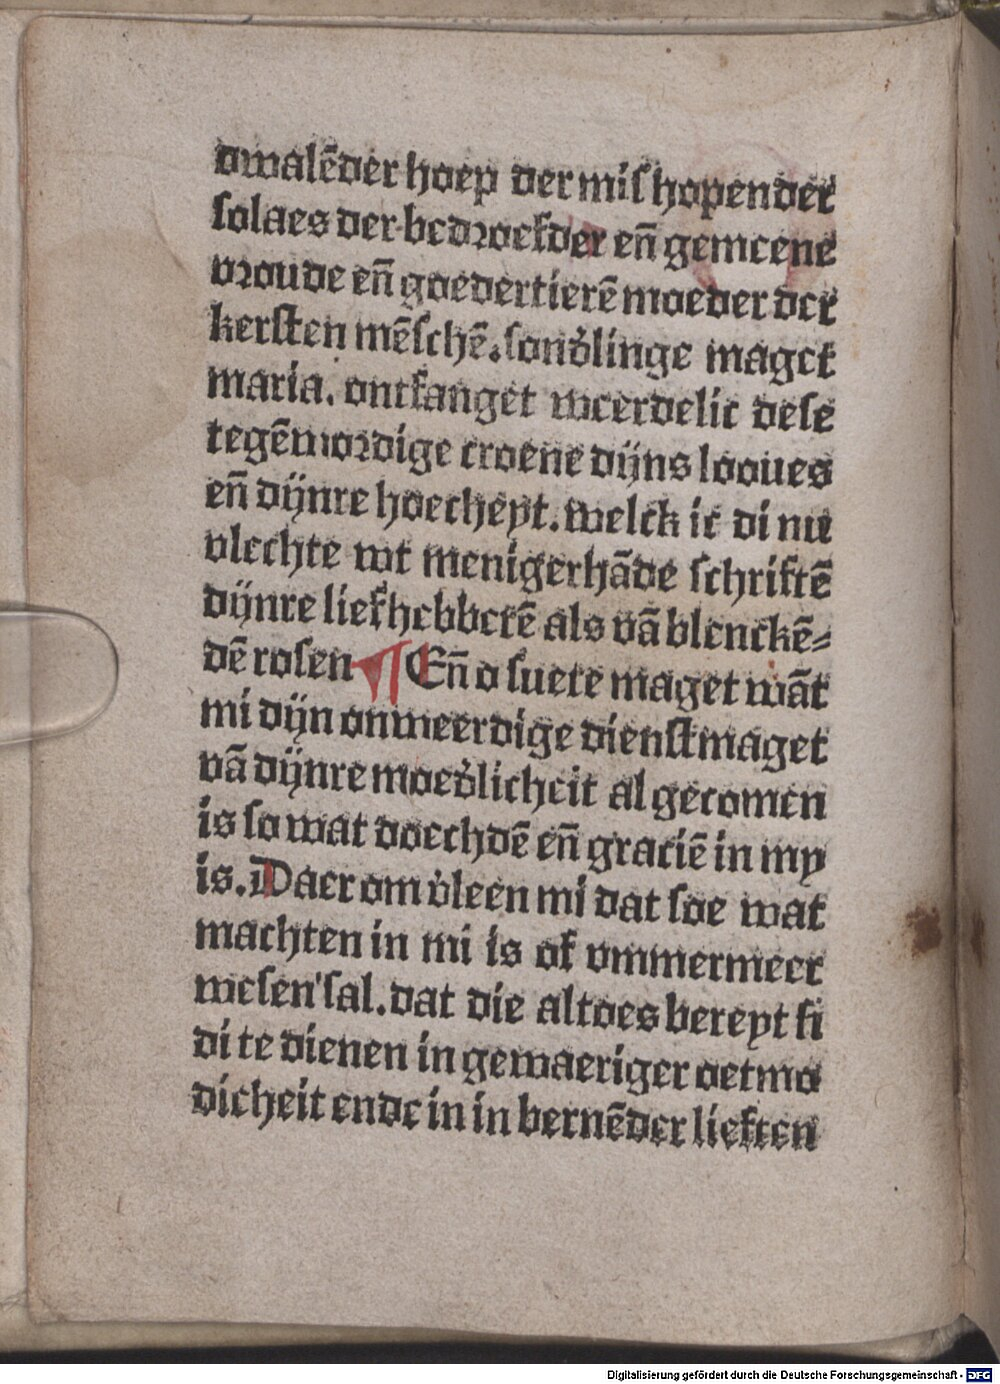 dwalēder hoep der mishopender
solaes der bedroefder en̄ gemeene
vroude en̄ goedertierē moeder der
kersten mēschē. sond̓linge maget
maria. ontfanget weerdelic dese
tegēwordige croene dijns looues
en̄ dijnre hoecheyt. welck ic di nu
vlechte wt menigerhāde schriftē
dijnre liefhebberē als vā blenckē⸗
dē rosen ¶ En̄ o suete maget wāt
mi dijn onweerdige dienstmaget
vā dijnre moed̓licheit al gecomen
is so wat doechdē en̄ graciē in my
is. Daer om v̓leen mi dat soe wat
machten in mi is of vmmermeer
wesen sal. dat die altoes bereyt si
di te dienen in gewaeriger oetmo
dicheit ende in in bernēder lieften
Digitalisierung gefördert durch die Deutsche Forschungsgemeinschaft - DFG